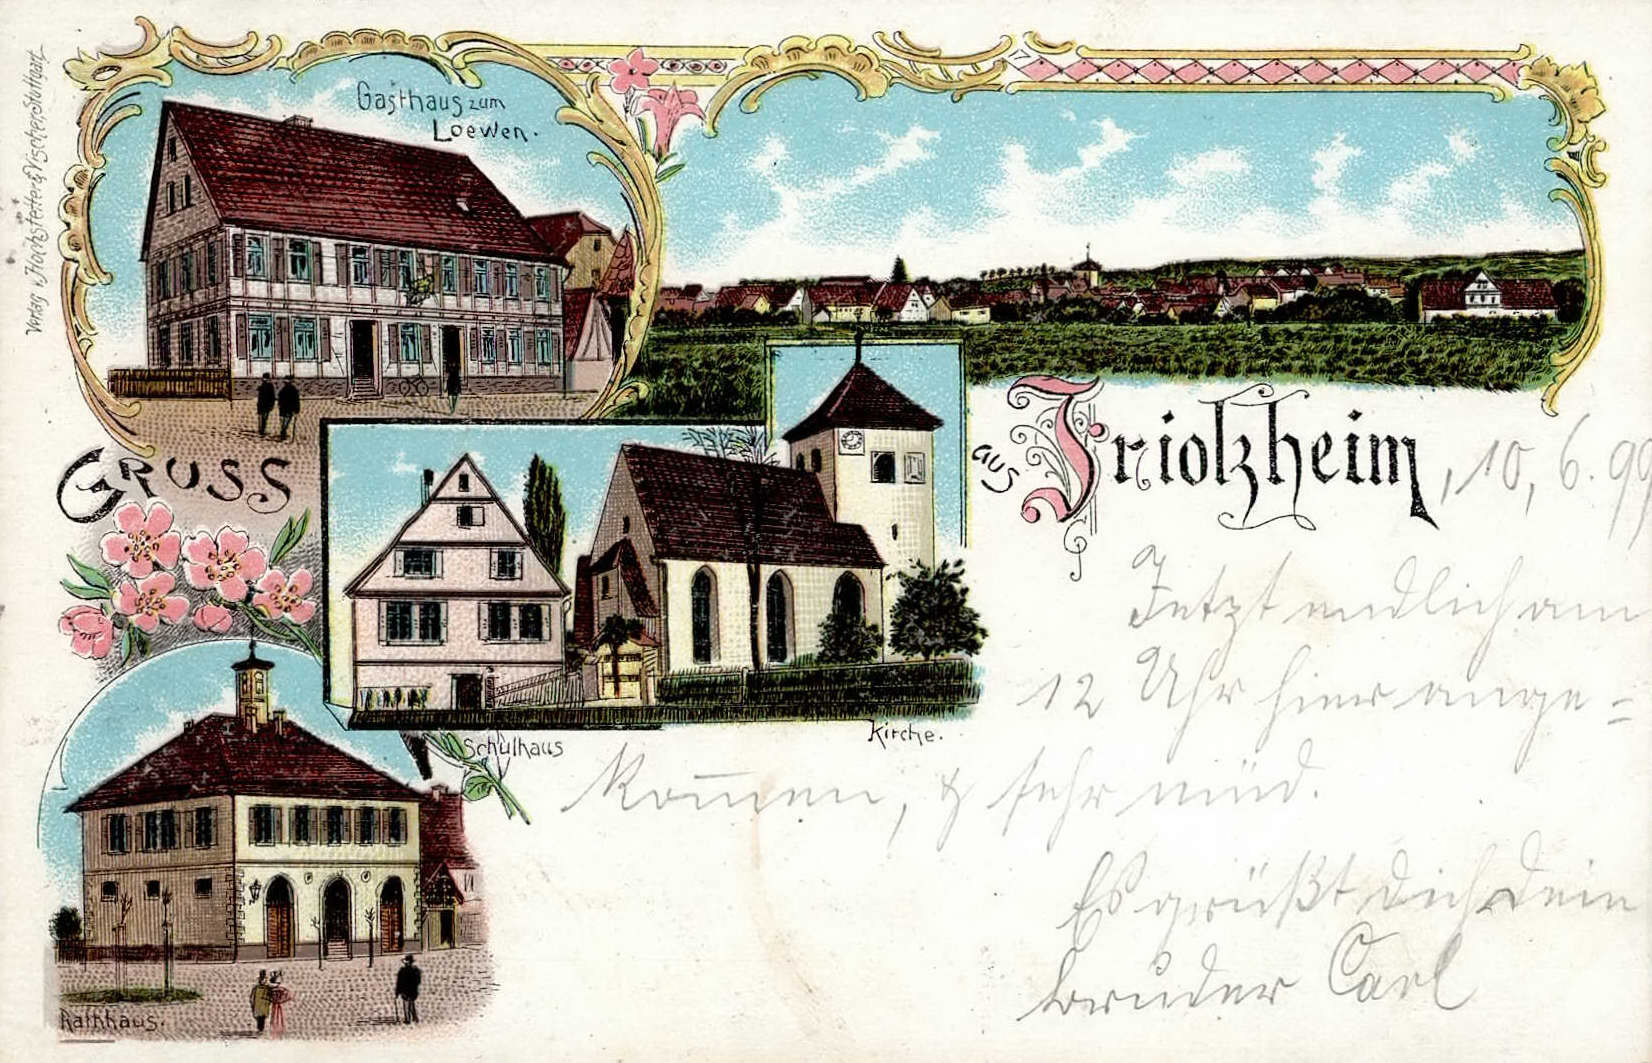 Verlag v. Hochstetter & Vischer, Stuttgart.
Gasthaus zum
Loewen.
GRUSS
aus
Friolzheim, 10, 6. 99
Jetzt endlich um
12 Uhr hier ange=
kom̅en, & sehr müd.
Schulhaus
Kirche.
Es grüßt dich dein
bruder Carl
Rathhaus.